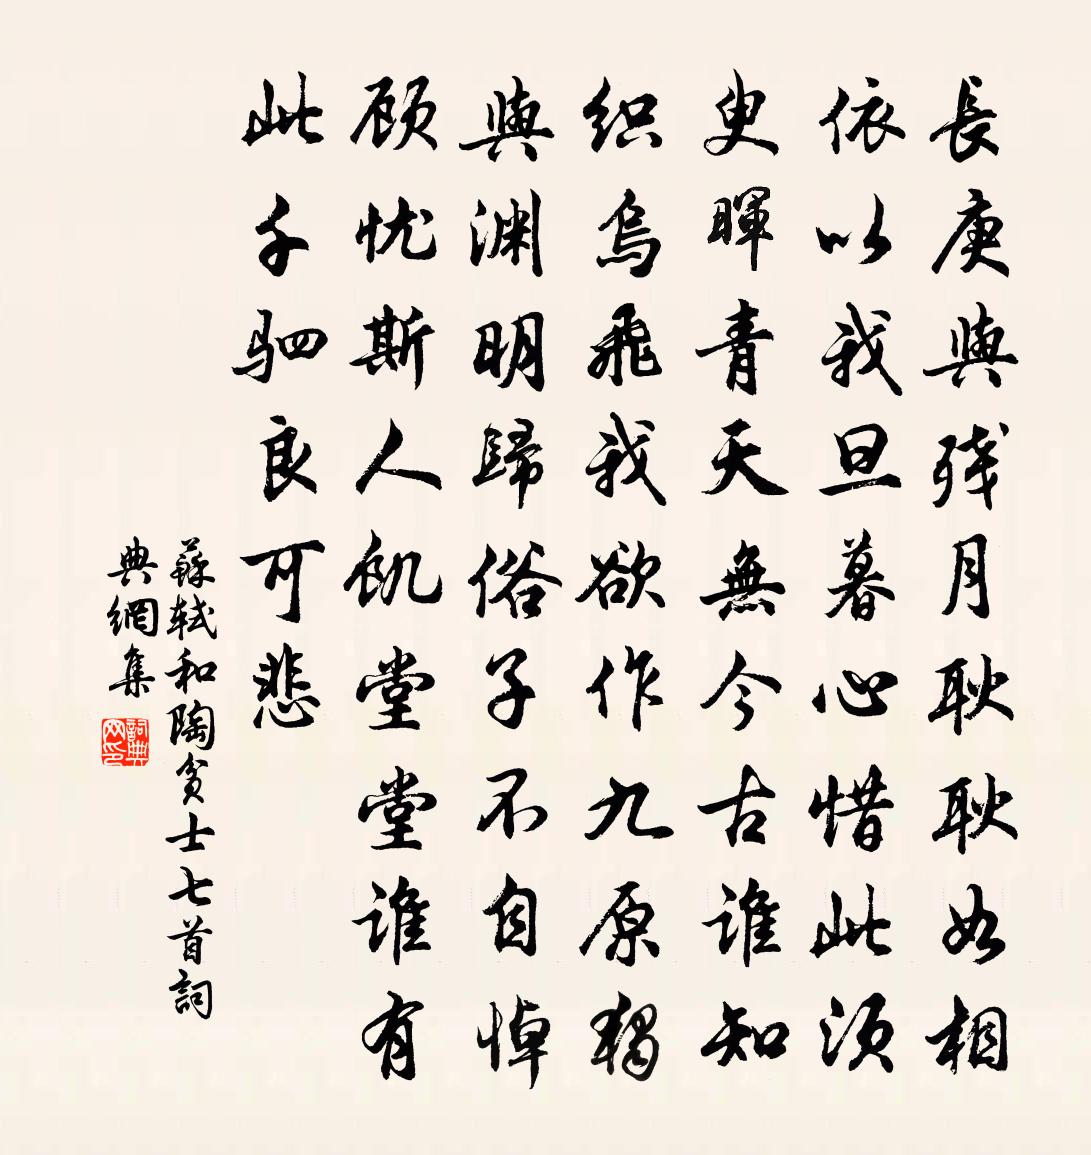 長庚與残月耿耿如相
依以我旦暮心惜此须
臾暉青天無今古誰知
织烏飛我欲作九原獨
與渊明歸俗子不自悼
顾忧斯人飢堂堂誰有
此千驷良可悲
蘇轼和陶贫士七首詞
典網集
詞典网印